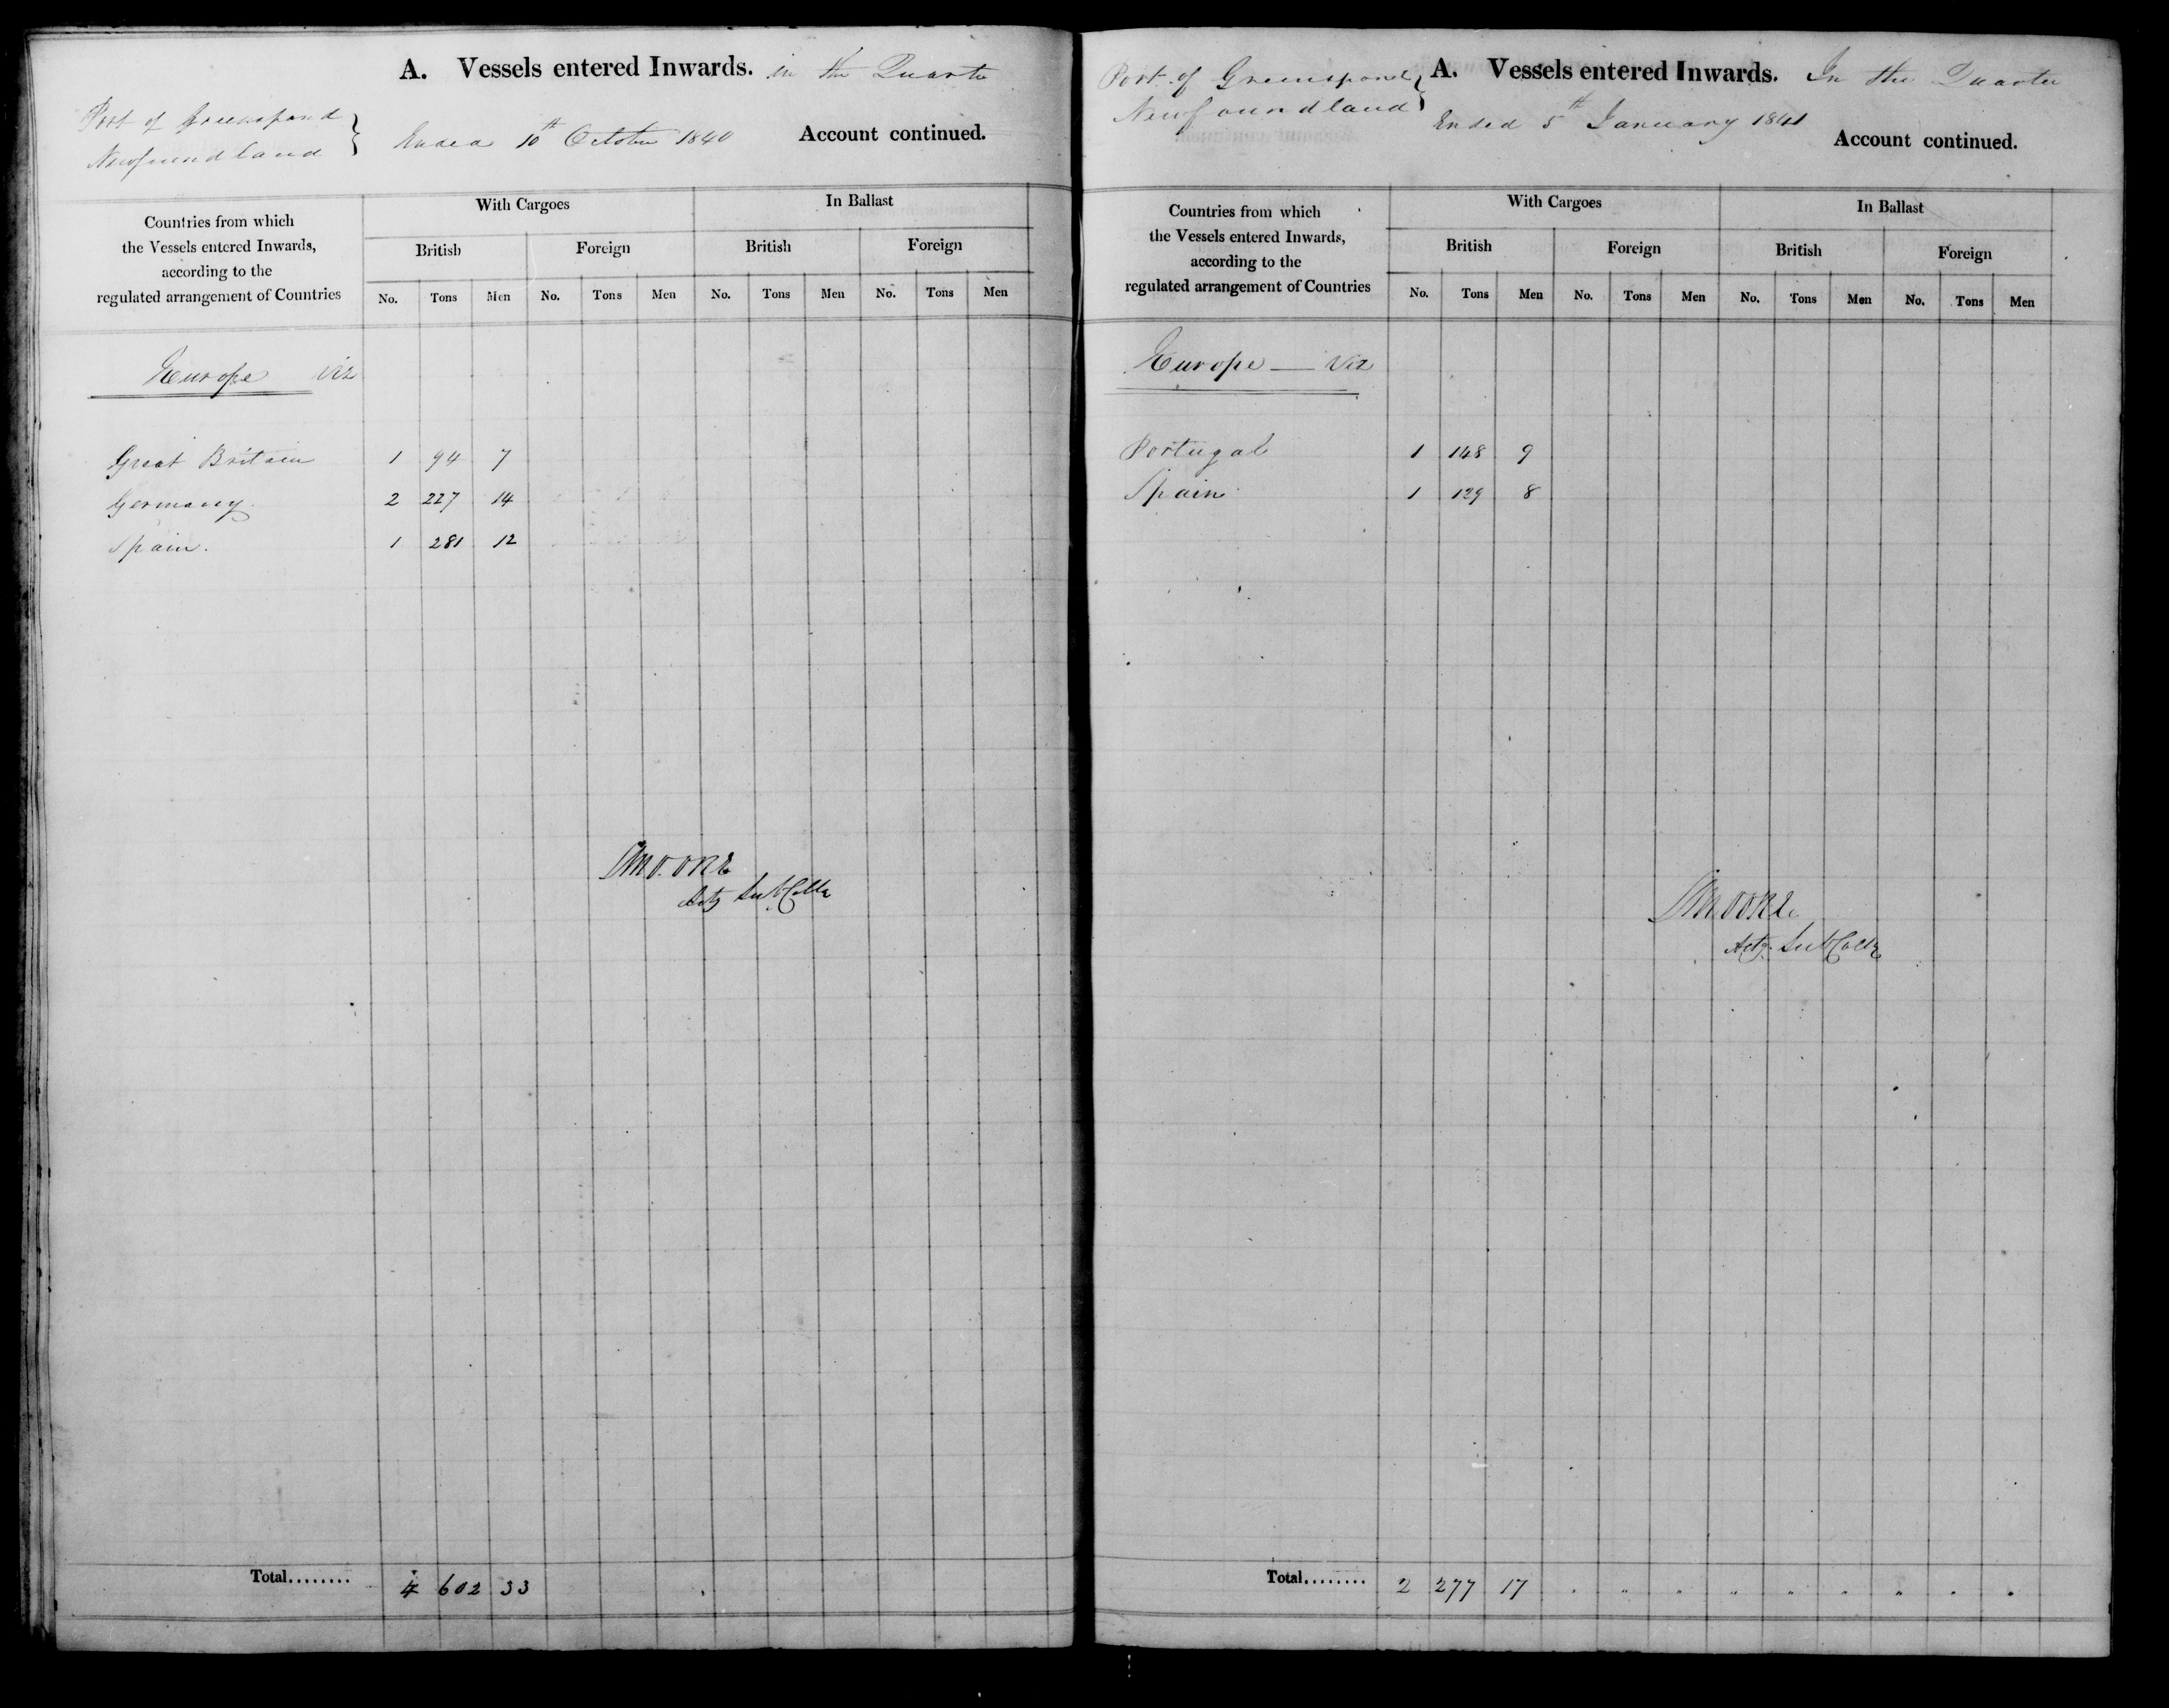 A. Vessels entered Inwards. in the Quarter
Port of Greenspond
Newfoundland } Ended 10th October 1840 Account continued.
Countries from which
the Vessels entered Inwards,
according to the
regulated arrangement of Countries
With Cargoes In Ballast
British Foreign British Foreign
No. Tons Men No. Tons Men No. Tons Men No. Tons Men
Europe Viz
Great Britain 1 94 7
Germany 2 227 14
Spain. 1 281 12
Actg Sub Collr
Total........ 4 602 33
Port of Greenspond } A. Vessels entered Inwards. In the Quarter
Newfoundland Ended 5th January 1841
Account continued.
Countries from which
the Vessels entered Inwards,
according to the
regulated arrangement of Countries
With Cargoes In Ballast
British Foreign British Foreign
No. Tons Men No. Tons Men No. Tons Men No. Tons Men
Europe — Viz
Portugal 1 148 9
Spain 1 129 8
Actg. Sub Collr
Total........ 2 277 17 " " " " " " " " "